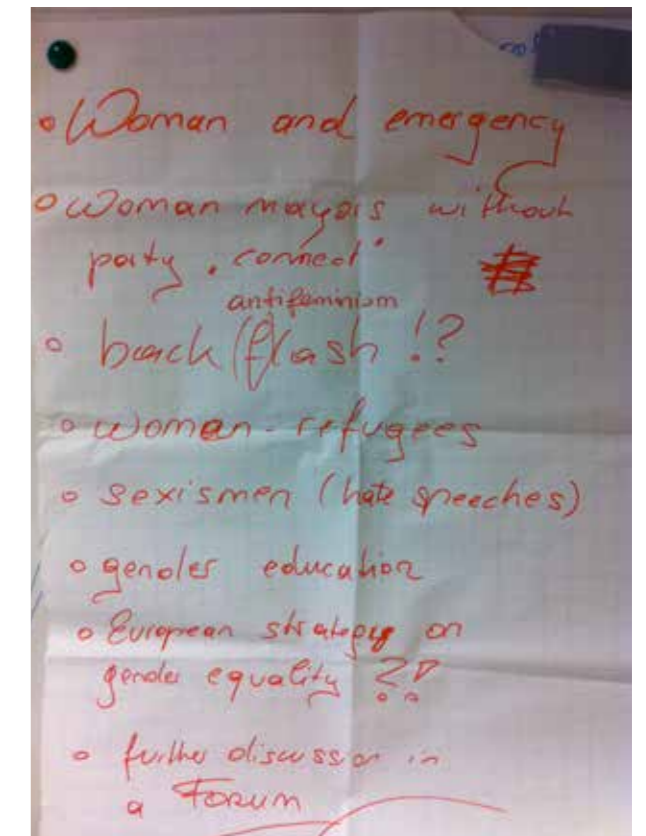 o Woman and emergency
o Woman mayors without
party "connect"
antifeminism
o back(f)lash !?
o woman-refugees
o sexismen (hate speeches)
o gender education
o European strategy on
gender equality ?!
o further discussion in
a Forum